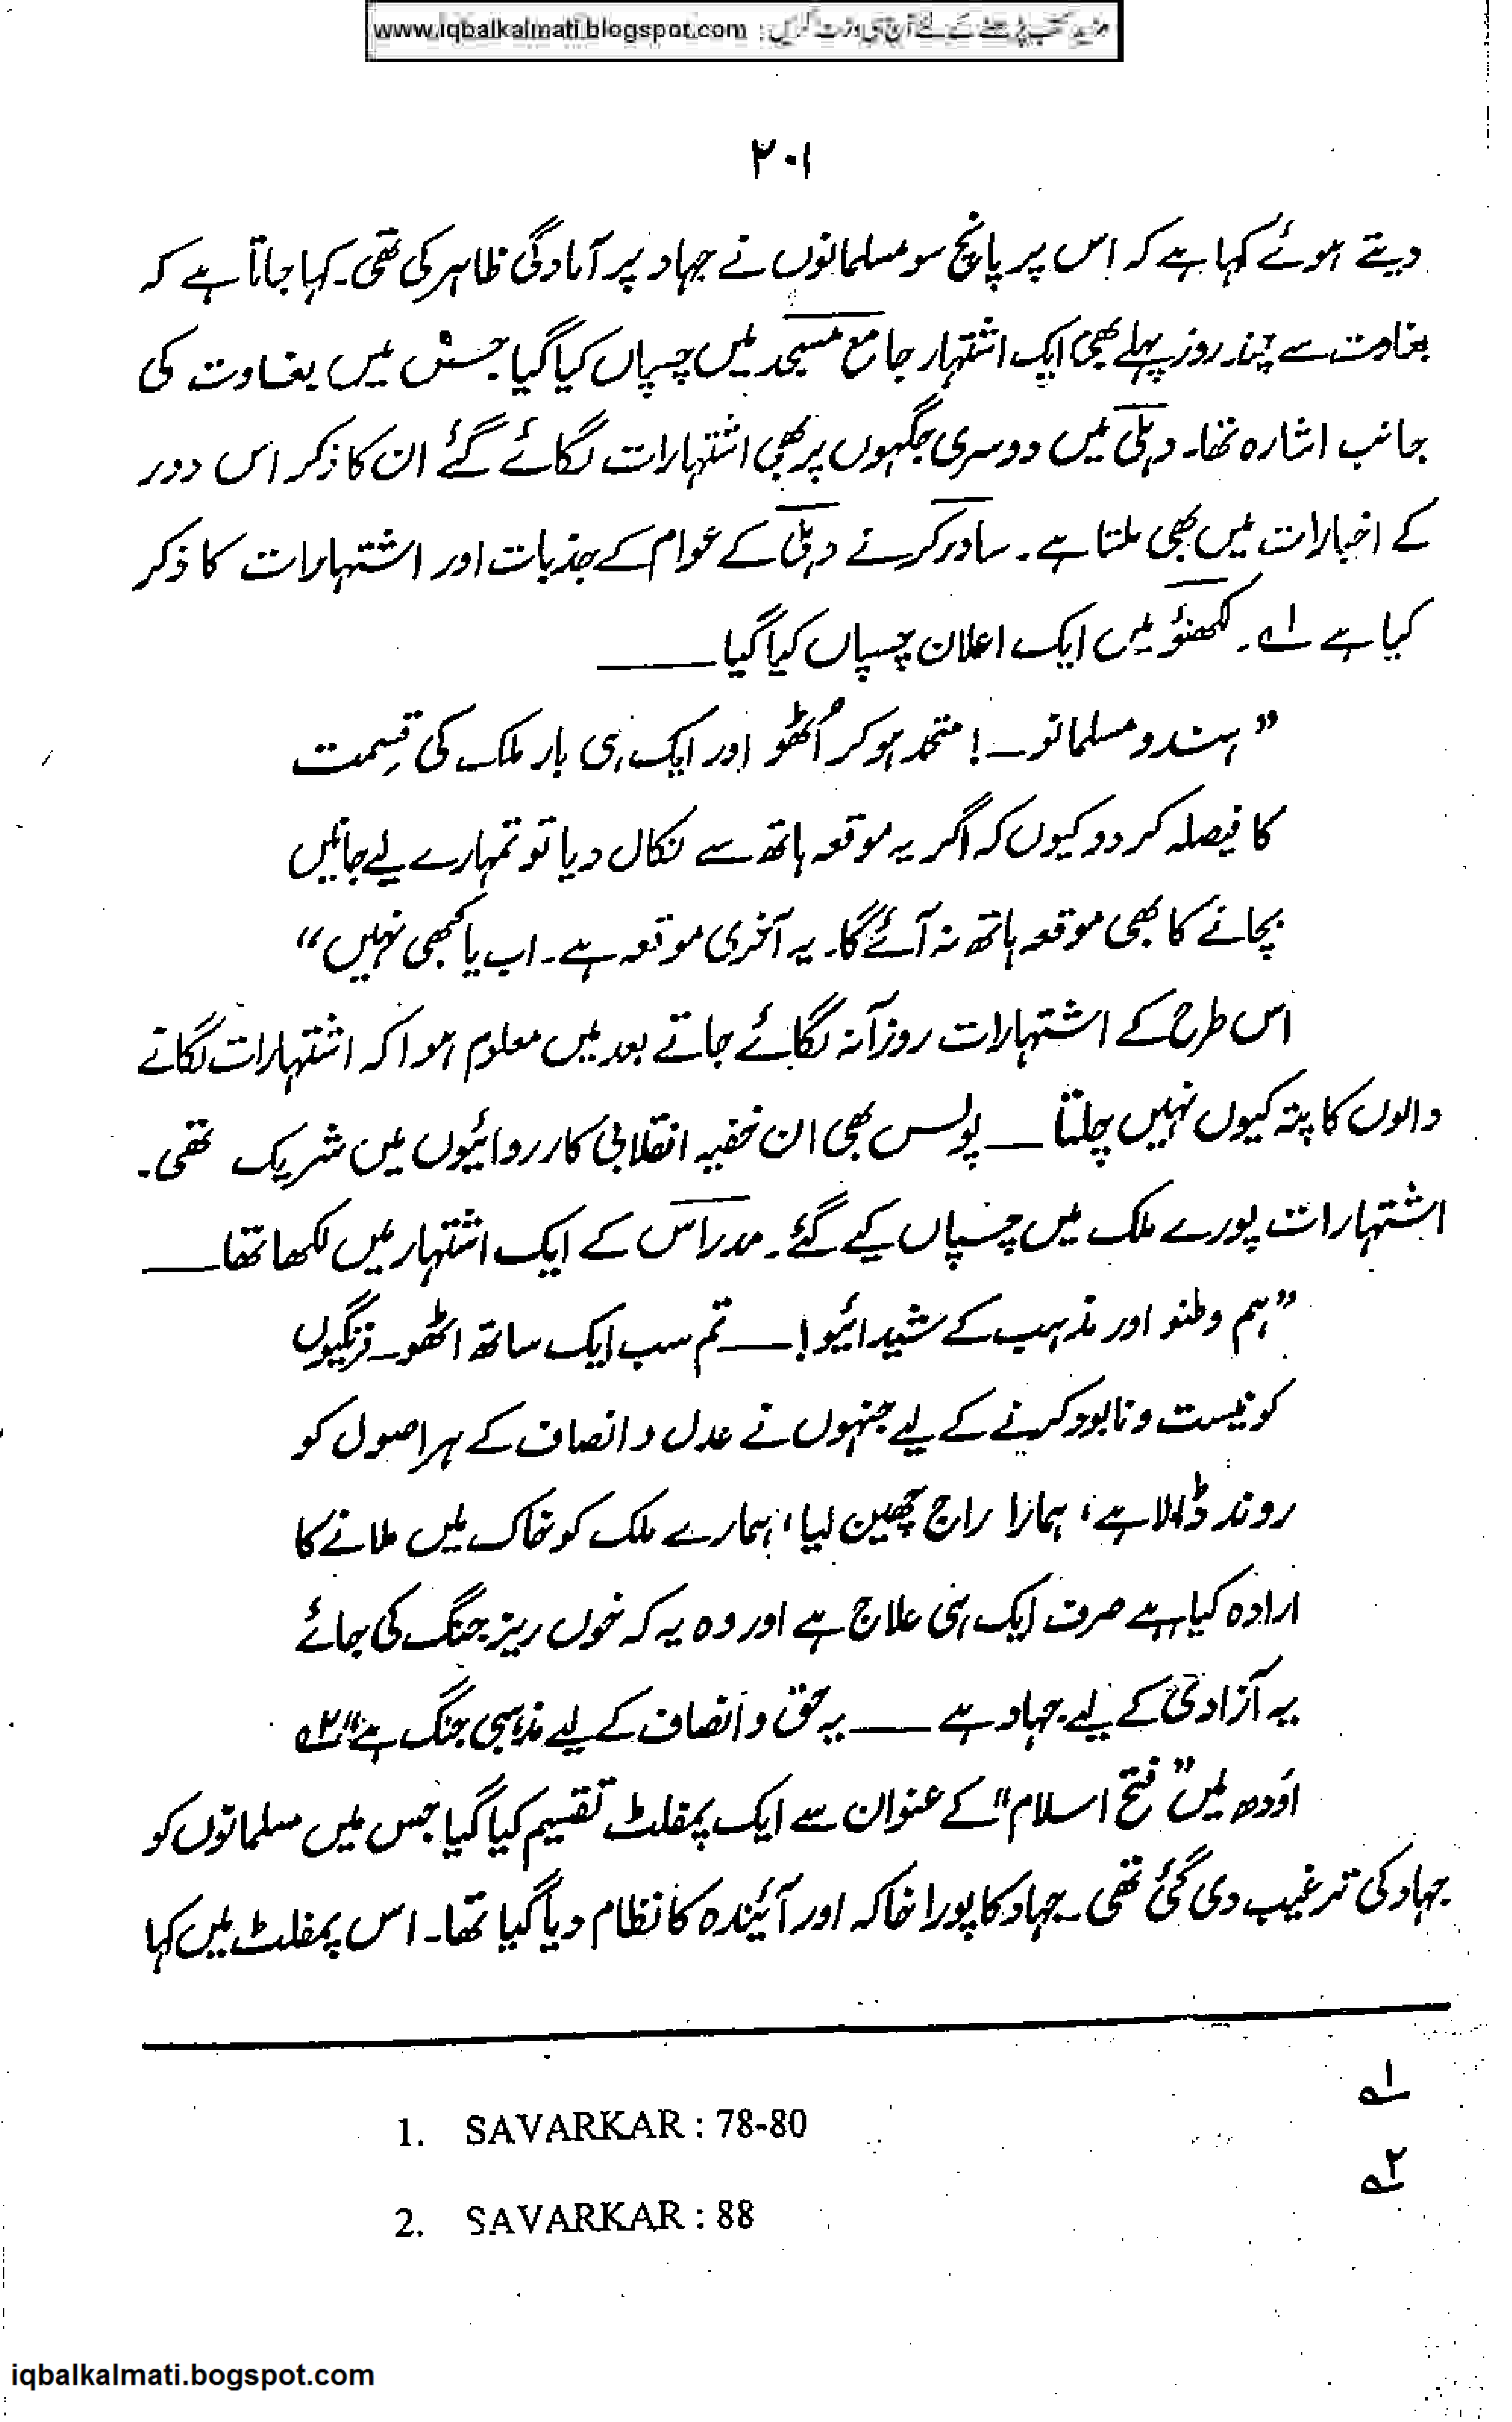 مزید کتب پڑھنے کے لئے آج ہی وزٹ کریں : www.iqbalkalmati.blogspot.com
۲۰۱
دیتے ہوئے کہا ہے کہ اس پر پانچ سو مسلمانوں نے جہاد پر آمادگی ظاہر کی تھی۔ کہا جاتا ہے کہ
بغاوت سے چند روز پہلے بھی ایک اشتہار جامع مسجد میں چسپاں کیا گیا جس میں بغاوت کی
جانب اشارہ تھا۔ دہلی میں دوسری جگہوں پر بھی اشتہارات لگائے گئے ان کا ذکر اس دور
کے اخبارات میں بھی ملتا ہے۔ ساورکر نے دہلی کے عوام کے جذبات اور اشتہارات کا ذکر
کیا ہے ۱؎۔ لکھنؤ میں ایک اعلان چسپاں کیا گیا ——
”ہندو مسلمانو—! متحد ہو کر اُٹھو اور ایک ہی بار ملک کی قِسمت
کا فیصلہ کر دو کیوں کہ اگر یہ موقعہ ہاتھ سے نکال دیا تو تمہارے لیے جانیں
بچانے کا بھی موقعہ ہاتھ نہ آئے گا۔ یہ آخری موقعہ ہے۔ اب یا کبھی نہیں“
اس طرح کے اشتہارات روزآنہ لگائے جاتے بعد میں معلوم ہوا کہ اشتہارات لگانے
والوں کا پتہ کیوں نہیں چلتا — پولس بھی ان خفیہ انقلابی کارروائیوں میں شریک تھی۔
اشتہارات پورے ملک میں چسپاں کیے گئے۔ مدراس کے ایک اشتہار میں لکھا تھا ——
”ہم وطنو اور مذہب کے شیدائیو! —— تم سب ایک ساتھ اٹھو۔ فرنگیوں
کو نیست و نابود کرنے کے لیے جنہوں نے عدل و انصاف کے ہر اصول کو
روند ڈالا ہے، ہمارا راج چھین لیا، ہمارے ملک کو خاک میں ملانے کا
ارادہ کیا ہے صرف ایک ہی علاج ہے اور وہ یہ کہ خوں ریز جنگ کی جائے
یہ آزادی کے لیے جہاد ہے —— یہ حق و انصاف کے لیے مذہبی جنگ ہے“ ۲؎
اَودھ میں ”فتح اسلام“ کے عنوان سے ایک پمفلٹ تقسیم کیا گیا جس میں مسلمانوں کو
جہاد کی ترغیب دی گئی تھی۔ جہاد کا پورا خاکہ اور آئیندہ کا نظام دیا گیا تھا۔ اس پمفلٹ میں کہا
۱؎ 1. SAVARKAR : 78-80
۲؎ 2. SAVARKAR : 88
iqbalkalmati.bogspot.com